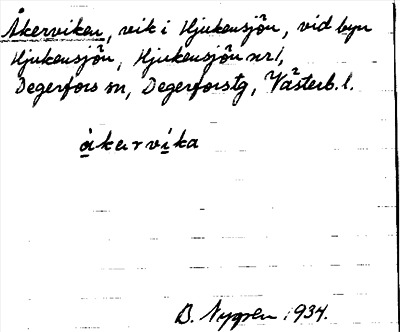 Åkerviken, vik i Hjukensjön, vid byn
Hjukensjön, Hjukensjön nr 1,
Degerfors sn, Degerforstg, Västerb. l.
åkarvika
B. Nygren 1934.